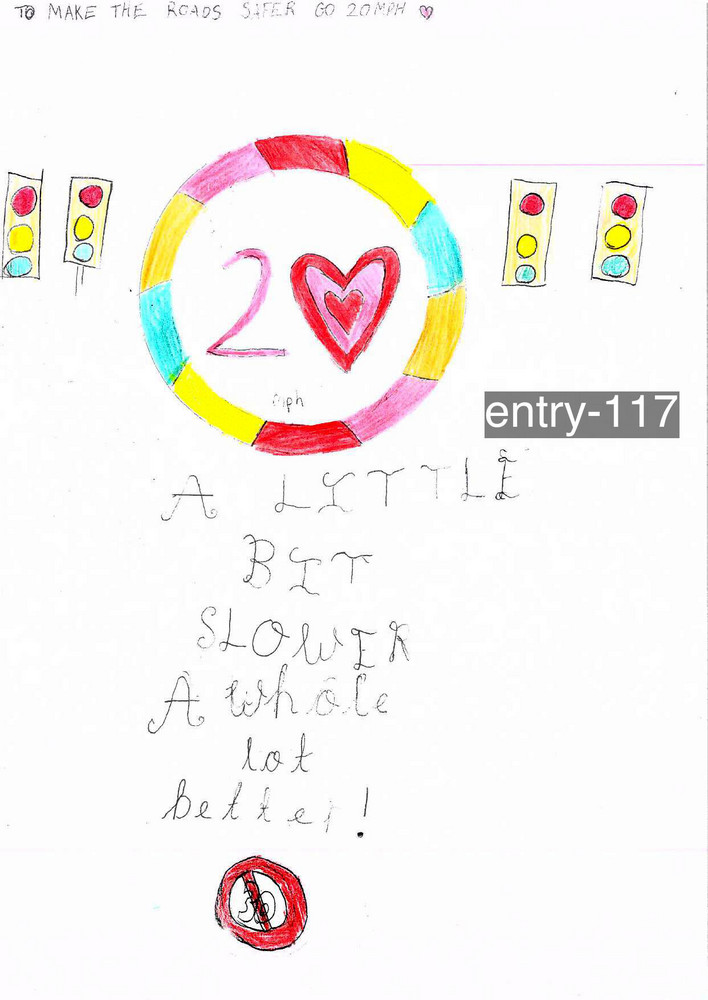 TO MAKE THE ROADS SAFER GO 20MPH
2
mph
entry-117
A LITTLE
BIT
SLOWER
A whole
lot
better!
30